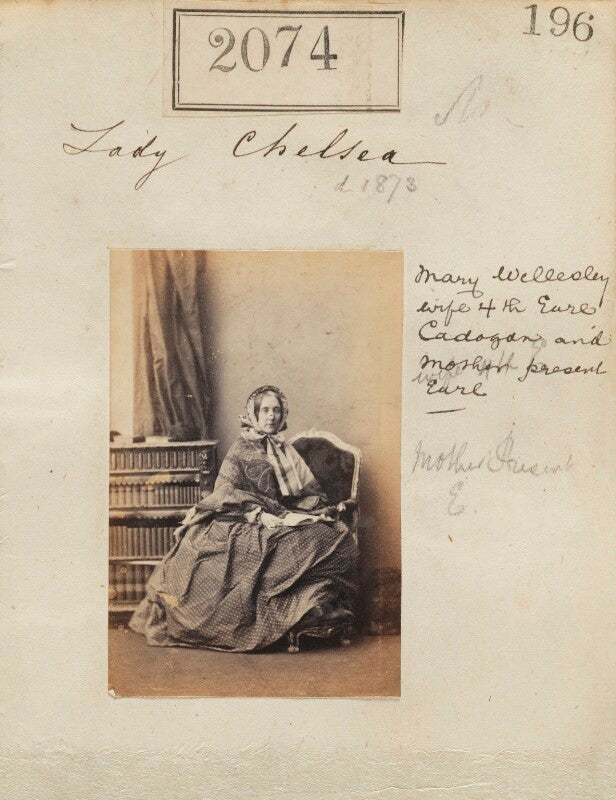 2074
196
Lady Chelsea
d 1873
Mary Wellesley
wife 4th Earl
Cadogan and
Mother present
Earl
Mother Present
E.